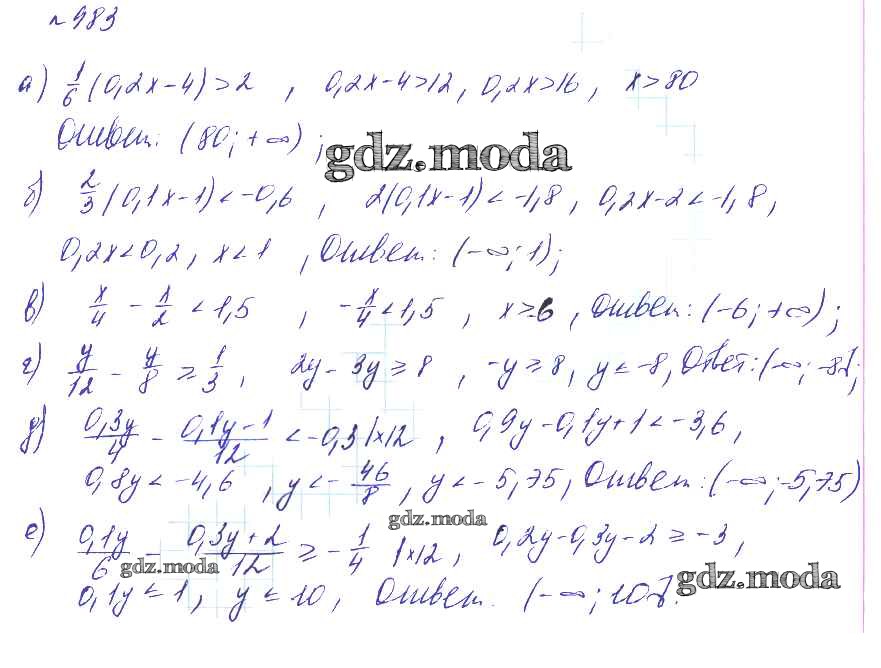 №983
а) 1/6 (0,2x-4)>2 , 0,2x-4>12, 0,2x>16, x>80
Ответ: (80; +∞) ;
gdz.moda
б) 2/3 (0,1x-1)<-0,6 , 2(0,1x-1)<-1,8, 0,2x-2<-1,8,
0,2x<0,2, x<1 , Ответ: (-∞; 1);
в) x/4 - x/2 <1,5 , -x/4<1,5 , x>-6 , Ответ: (-6; +∞);
г) y/12 - y/8 ≥ 1/3, 2y-3y≥8 , -y≥8, y≤-8, Ответ: (-∞; -8];
д) 0,3y/4 - 0,1y-1/12 <-0,3 |×12 , 0,9y-0,1y+1<-3,6,
0,8y<-4,6 , y<-46/8, y<-5,75, Ответ: (-∞; -5,75)
gdz.moda
е) 0,1y/6 - 0,3y+2/12 ≥ -1/4 |×12, 0,2y-0,3y-2≥-3,
gdz.moda
gdz.moda
0,1y≤1, y≤10, Ответ. (-∞; 10].